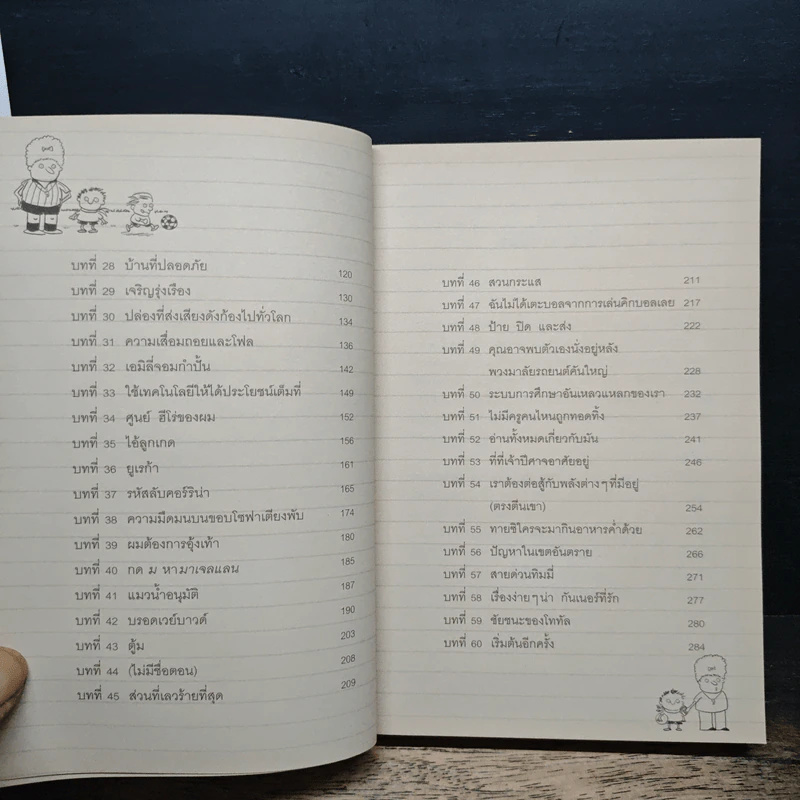 บทที่ 28 บ้านที่ปลอดภัย 120
บทที่ 29 เจริญรุ่งเรือง 130
บทที่ 30 ปล่องที่ส่งเสียงดังก้องไปทั่วโลก 134
บทที่ 31 ความเสื่อมถอยและโฟล 136
บทที่ 32 เอมิลี่จอมกำปั้น 142
บทที่ 33 ใช้เทคโนโลยีให้ได้ประโยชน์เต็มที่ 149
บทที่ 34 ศูนย์ ฮีโร่ของผม 152
บทที่ 35 ไอ้ลูกเกด 156
บทที่ 36 ยูเรก้า 161
บทที่ 37 รหัสลับคอร์ริน่า 165
บทที่ 38 ความมืดมนบนขอบโซฟาเตียงพับ 174
บทที่ 39 ผมต้องการอุ้งเท้า 180
บทที่ 40 กด ม หามาเจลแลน 185
บทที่ 41 แมวน้ำอนุมัติ 187
บทที่ 42 บรอดเวย์บาวด์ 190
บทที่ 43 ตู้ม 203
บทที่ 44 (ไม่มีชื่อตอน) 208
บทที่ 45 ส่วนที่เลวร้ายที่สุด 209
บทที่ 46 สวนกระแส 211
บทที่ 47 ฉันไม่ได้เตะบอลจากการเล่นคิกบอลเลย 217
บทที่ 48 ป้าย ปิด และส่ง 222
บทที่ 49 คุณอาจพบตัวเองนั่งอยู่หลัง
พวงมาลัยรถยนต์คันใหญ่ 228
บทที่ 50 ระบบการศึกษาอันเหลวแหลกของเรา 232
บทที่ 51 ไม่มีครูคนไหนถูกทอดทิ้ง 237
บทที่ 52 อ่านทั้งหมดเกี่ยวกับมัน 241
บทที่ 53 ที่ที่เจ้าปีศาจอาศัยอยู่ 246
บทที่ 54 เราต้องต่อสู้กับพลังต่างๆที่มีอยู่
(ตรงตีนเขา) 254
บทที่ 55 ทายซิใครจะมากินอาหารค่ำด้วย 262
บทที่ 56 ปัญหาในเขตอันตราย 266
บทที่ 57 สายด่วนทิมมี่ 271
บทที่ 58 เรื่องง่ายๆน่า กันเนอร์ที่รัก 277
บทที่ 59 ชัยชนะของโททัล 280
บทที่ 60 เริ่มต้นอีกครั้ง 284